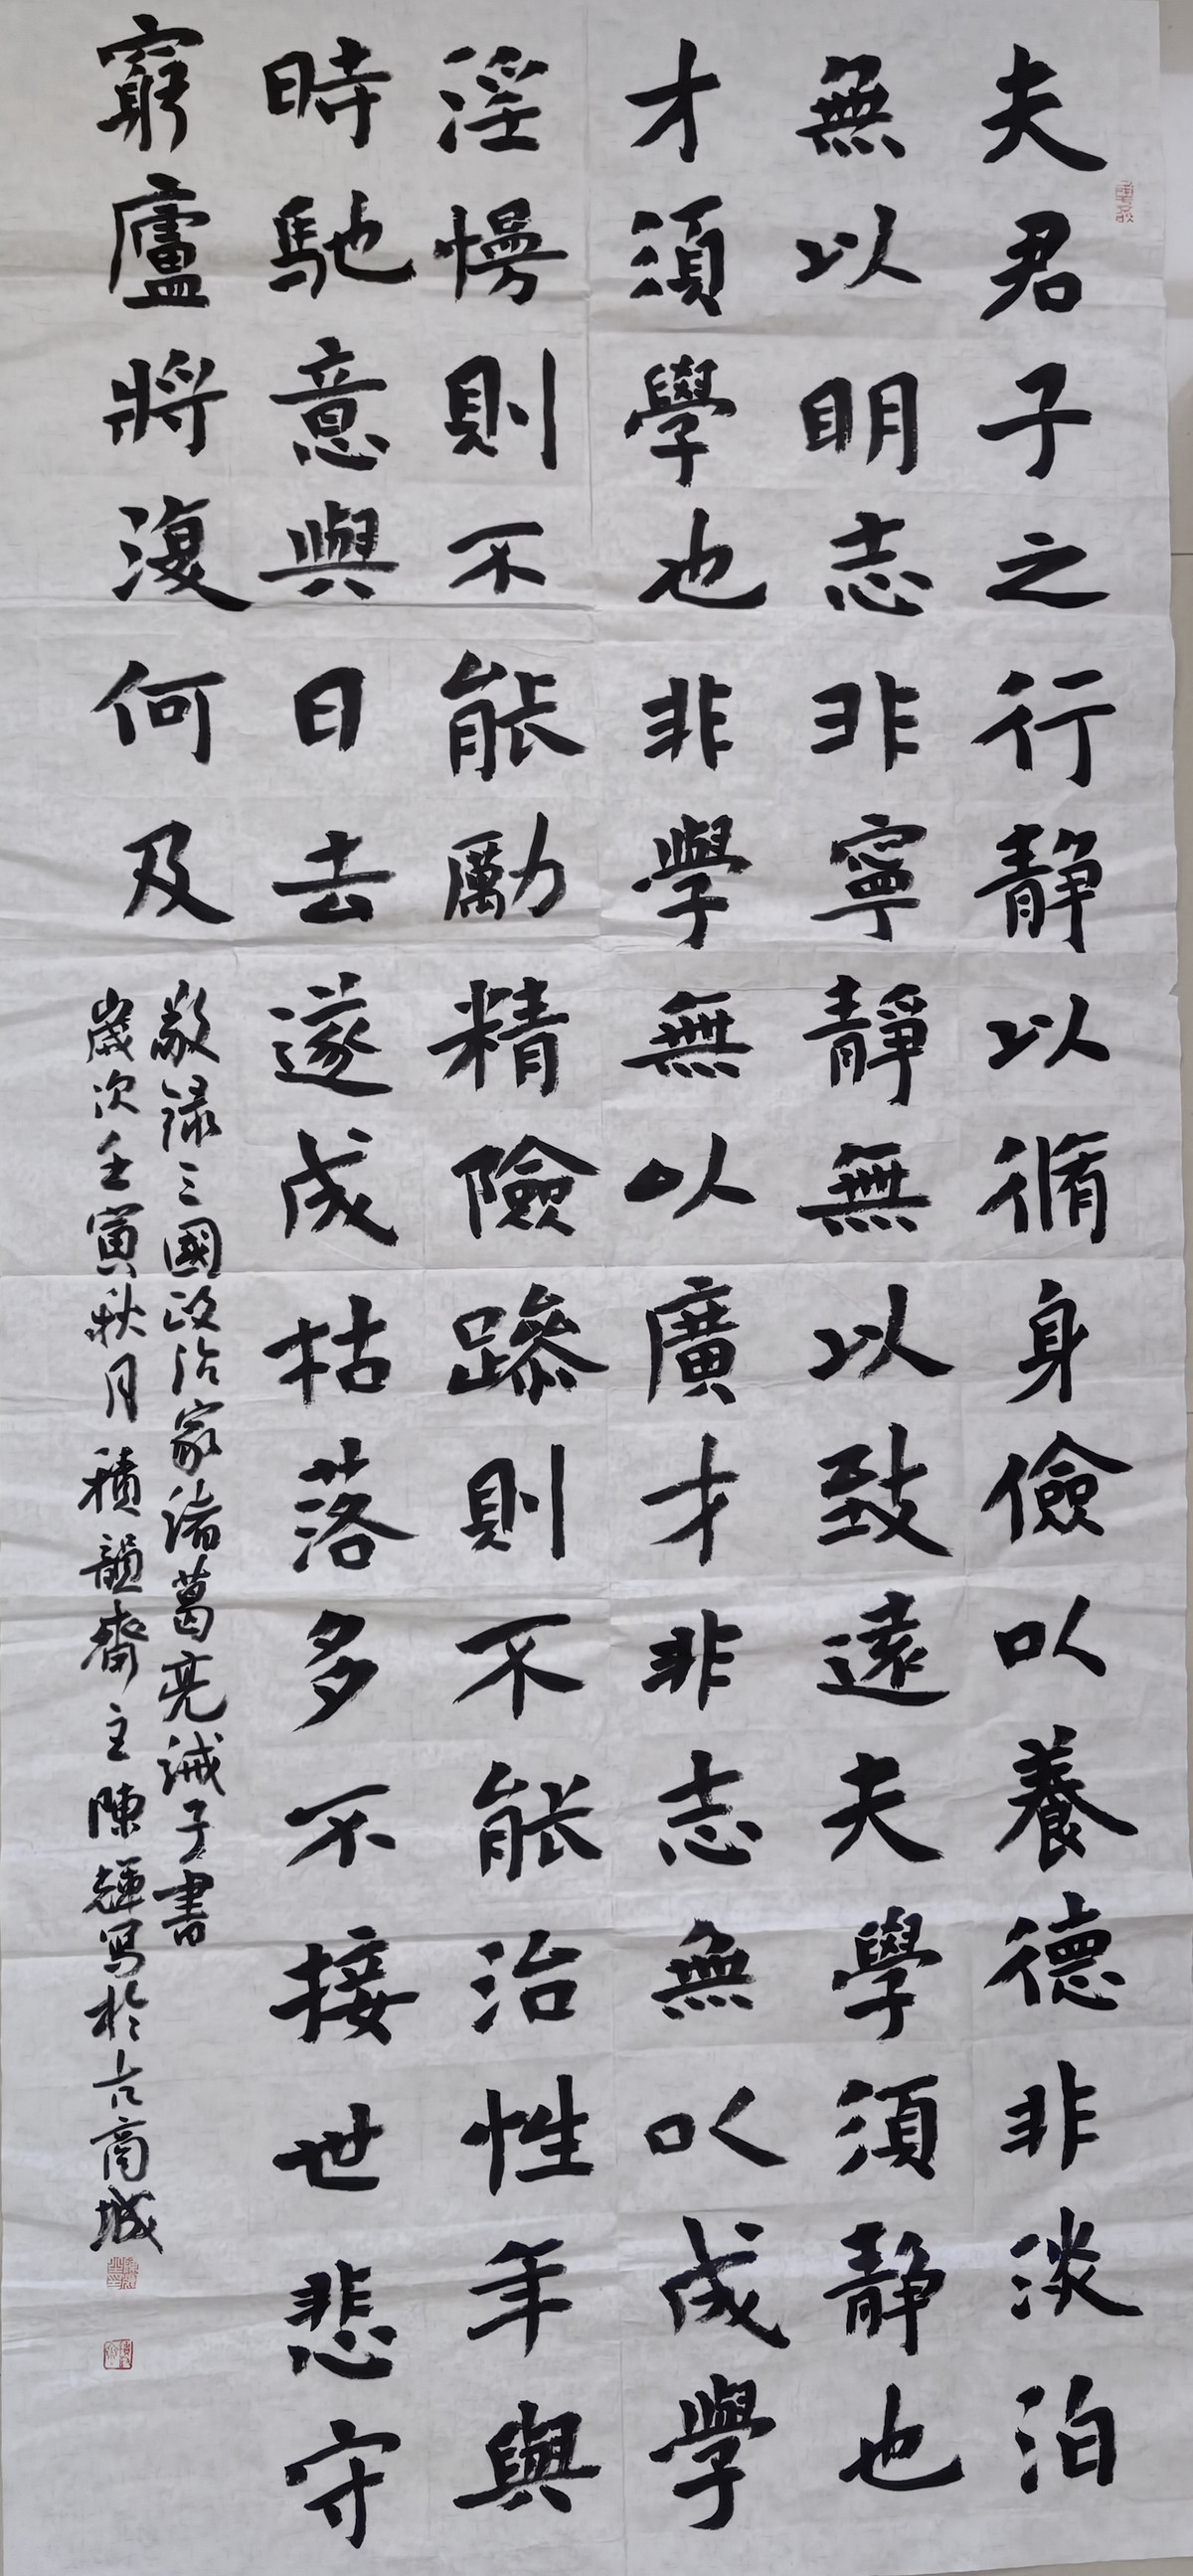 夫君子之行静以脩身儉以養德非淡泊
無以明志非寧靜無以致遠夫學須静也
才須學也非學無以廣才非志無以成學
淫慢則不能勵精險躁則不能治性年與
時馳意與日去遂成枯落多不接世悲守
窮廬將復何及
敬録三國政治家諸葛亮誡子書
歲次壬寅秋月積韻齋主陳輝写於古商城